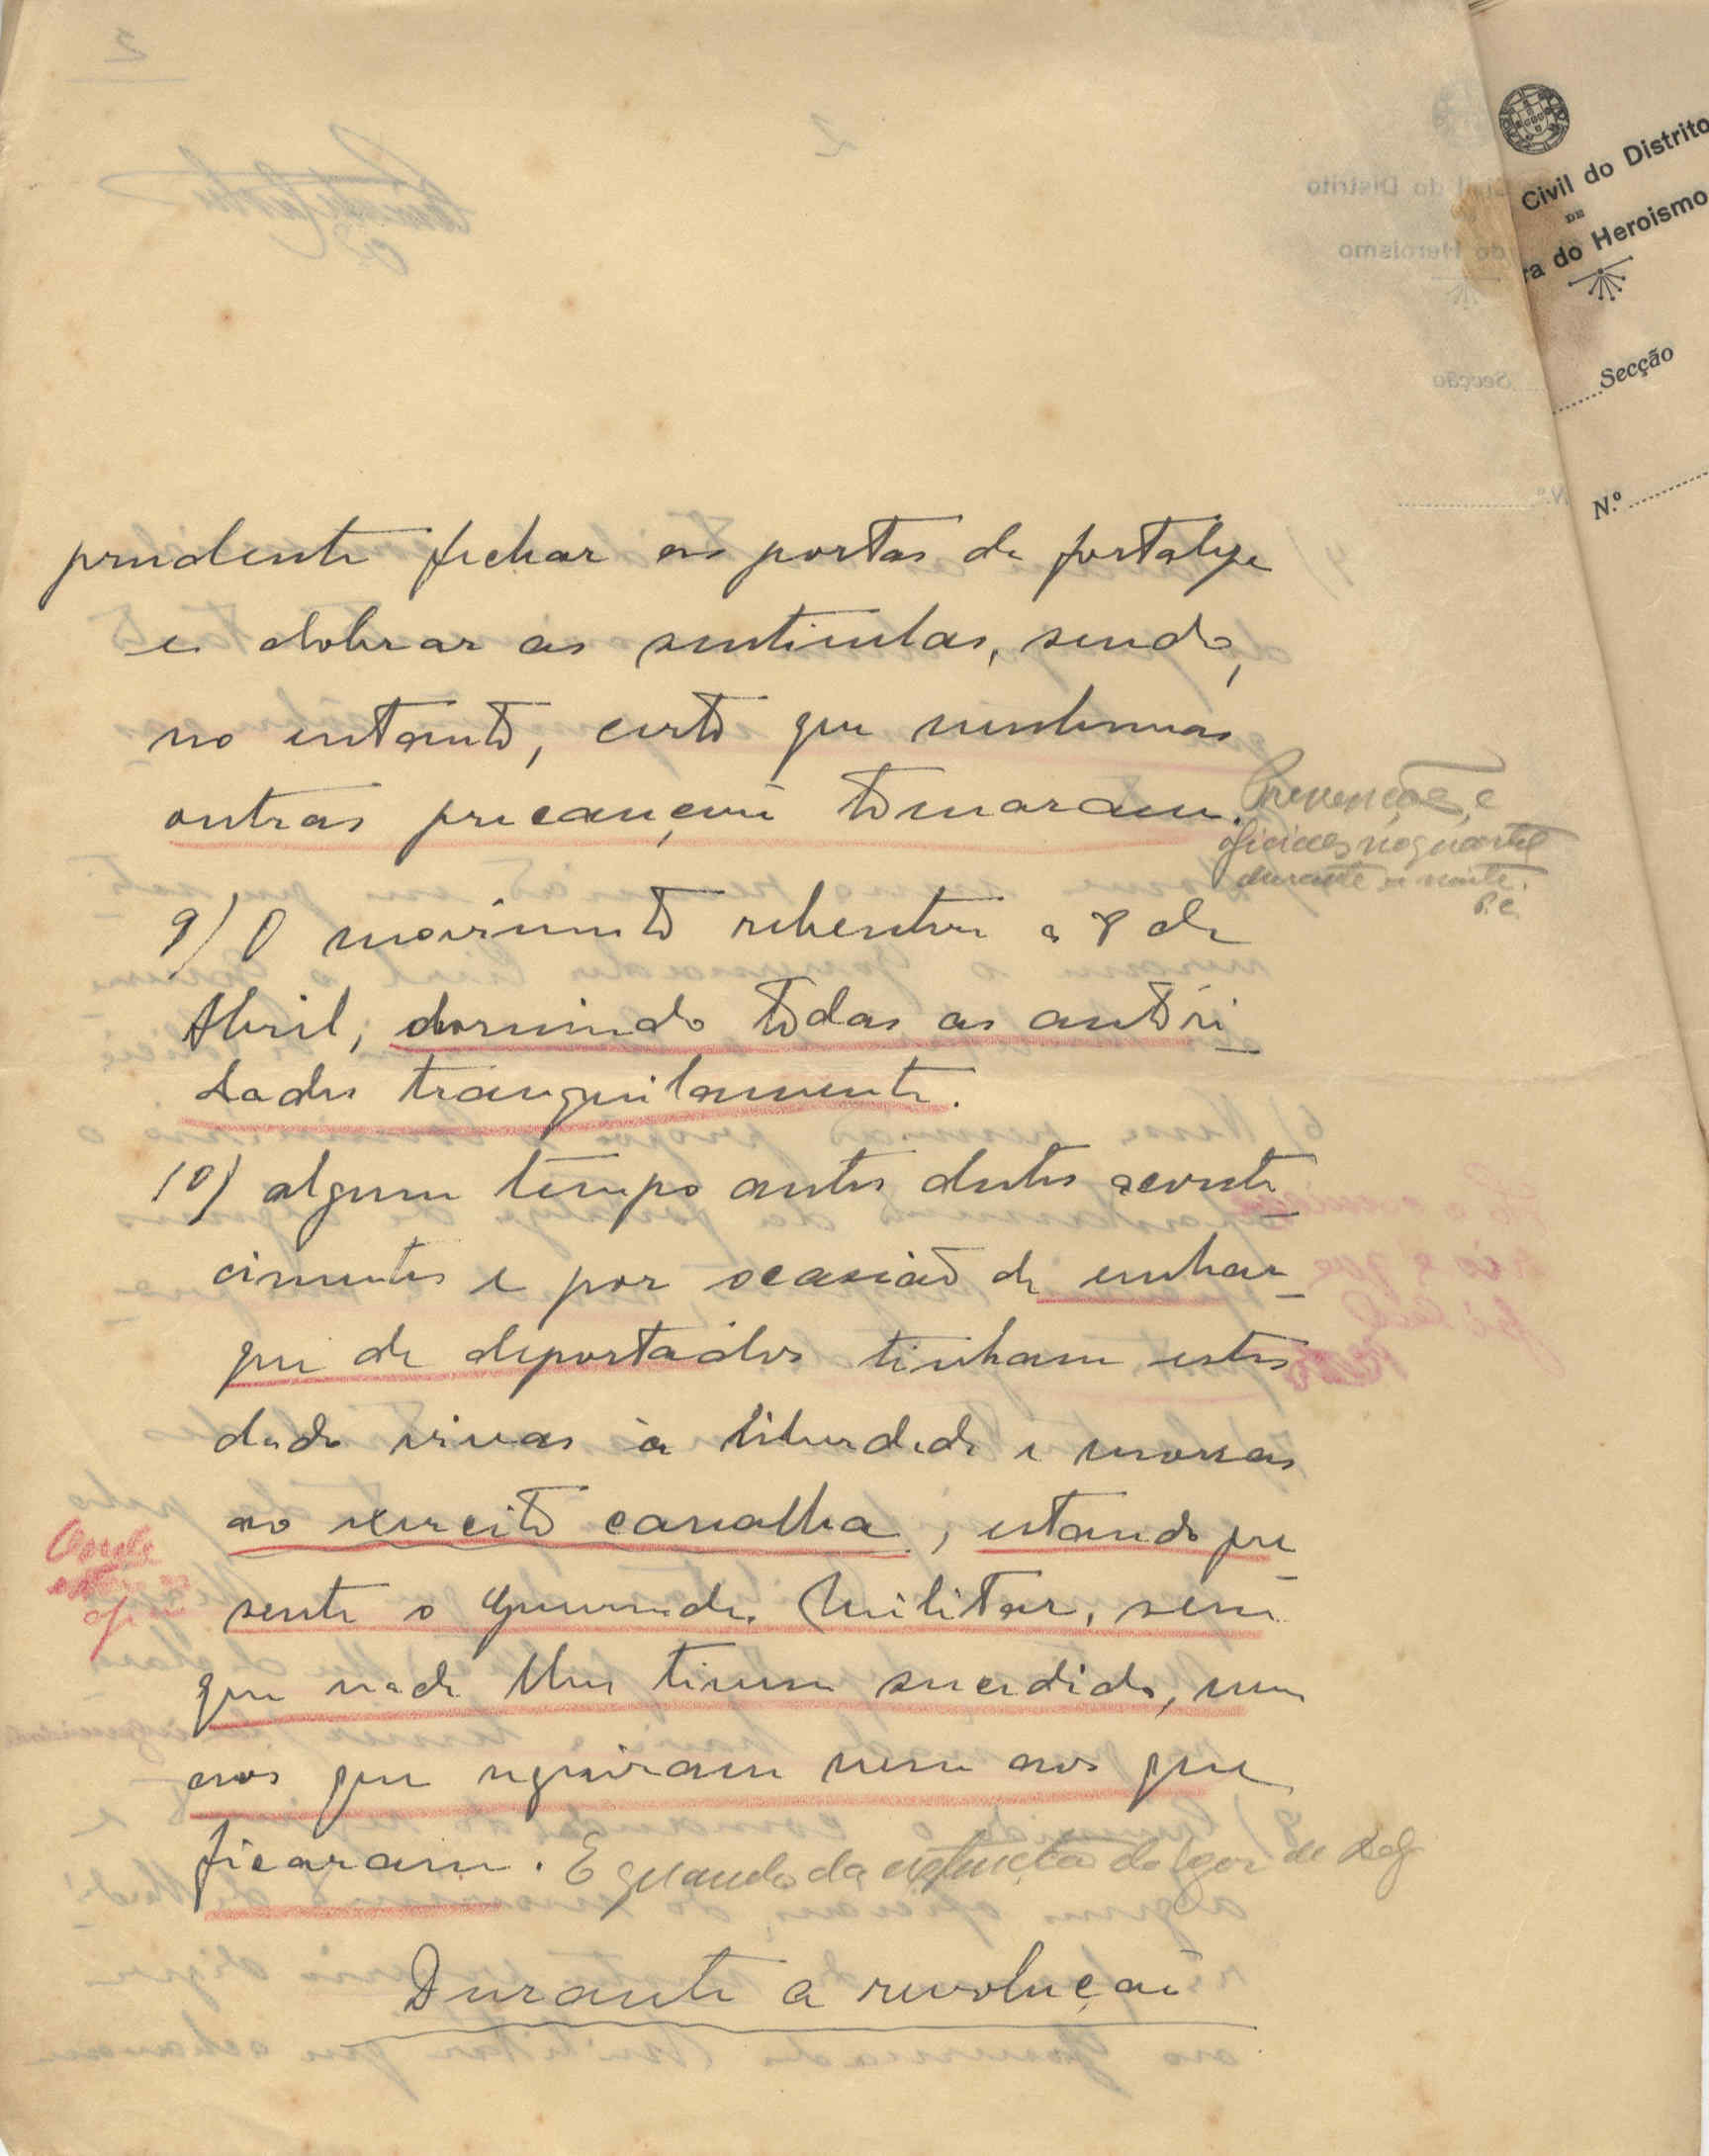 Civil do Distrito
DE
ra do Heroismo
Secção
N.º
prudente fechar as portas da fortaleza
e dobrar as sentinelas, sendo,
no entanto, certo que nenhumas
outras precauções tomaram.
Prevenção e
oficiaes no quartel
durante a noite.
P.C.
9) O movimento rebentou a 8 de
Abril, dormindo todas as autori-
dades tranquilamente.
10) algum tempo antes destes aconte-
cimentos e por ocasião de embar-
que de deportados tinham estes
dado vivas à liberdade e morras
ao exercito canalha, estando pre-
sente o Governador Militar, sem
que nada lhes tivesse sucedido, nem
aos que seguiram nem aos que
ficaram. E quando da
Durante a revolução